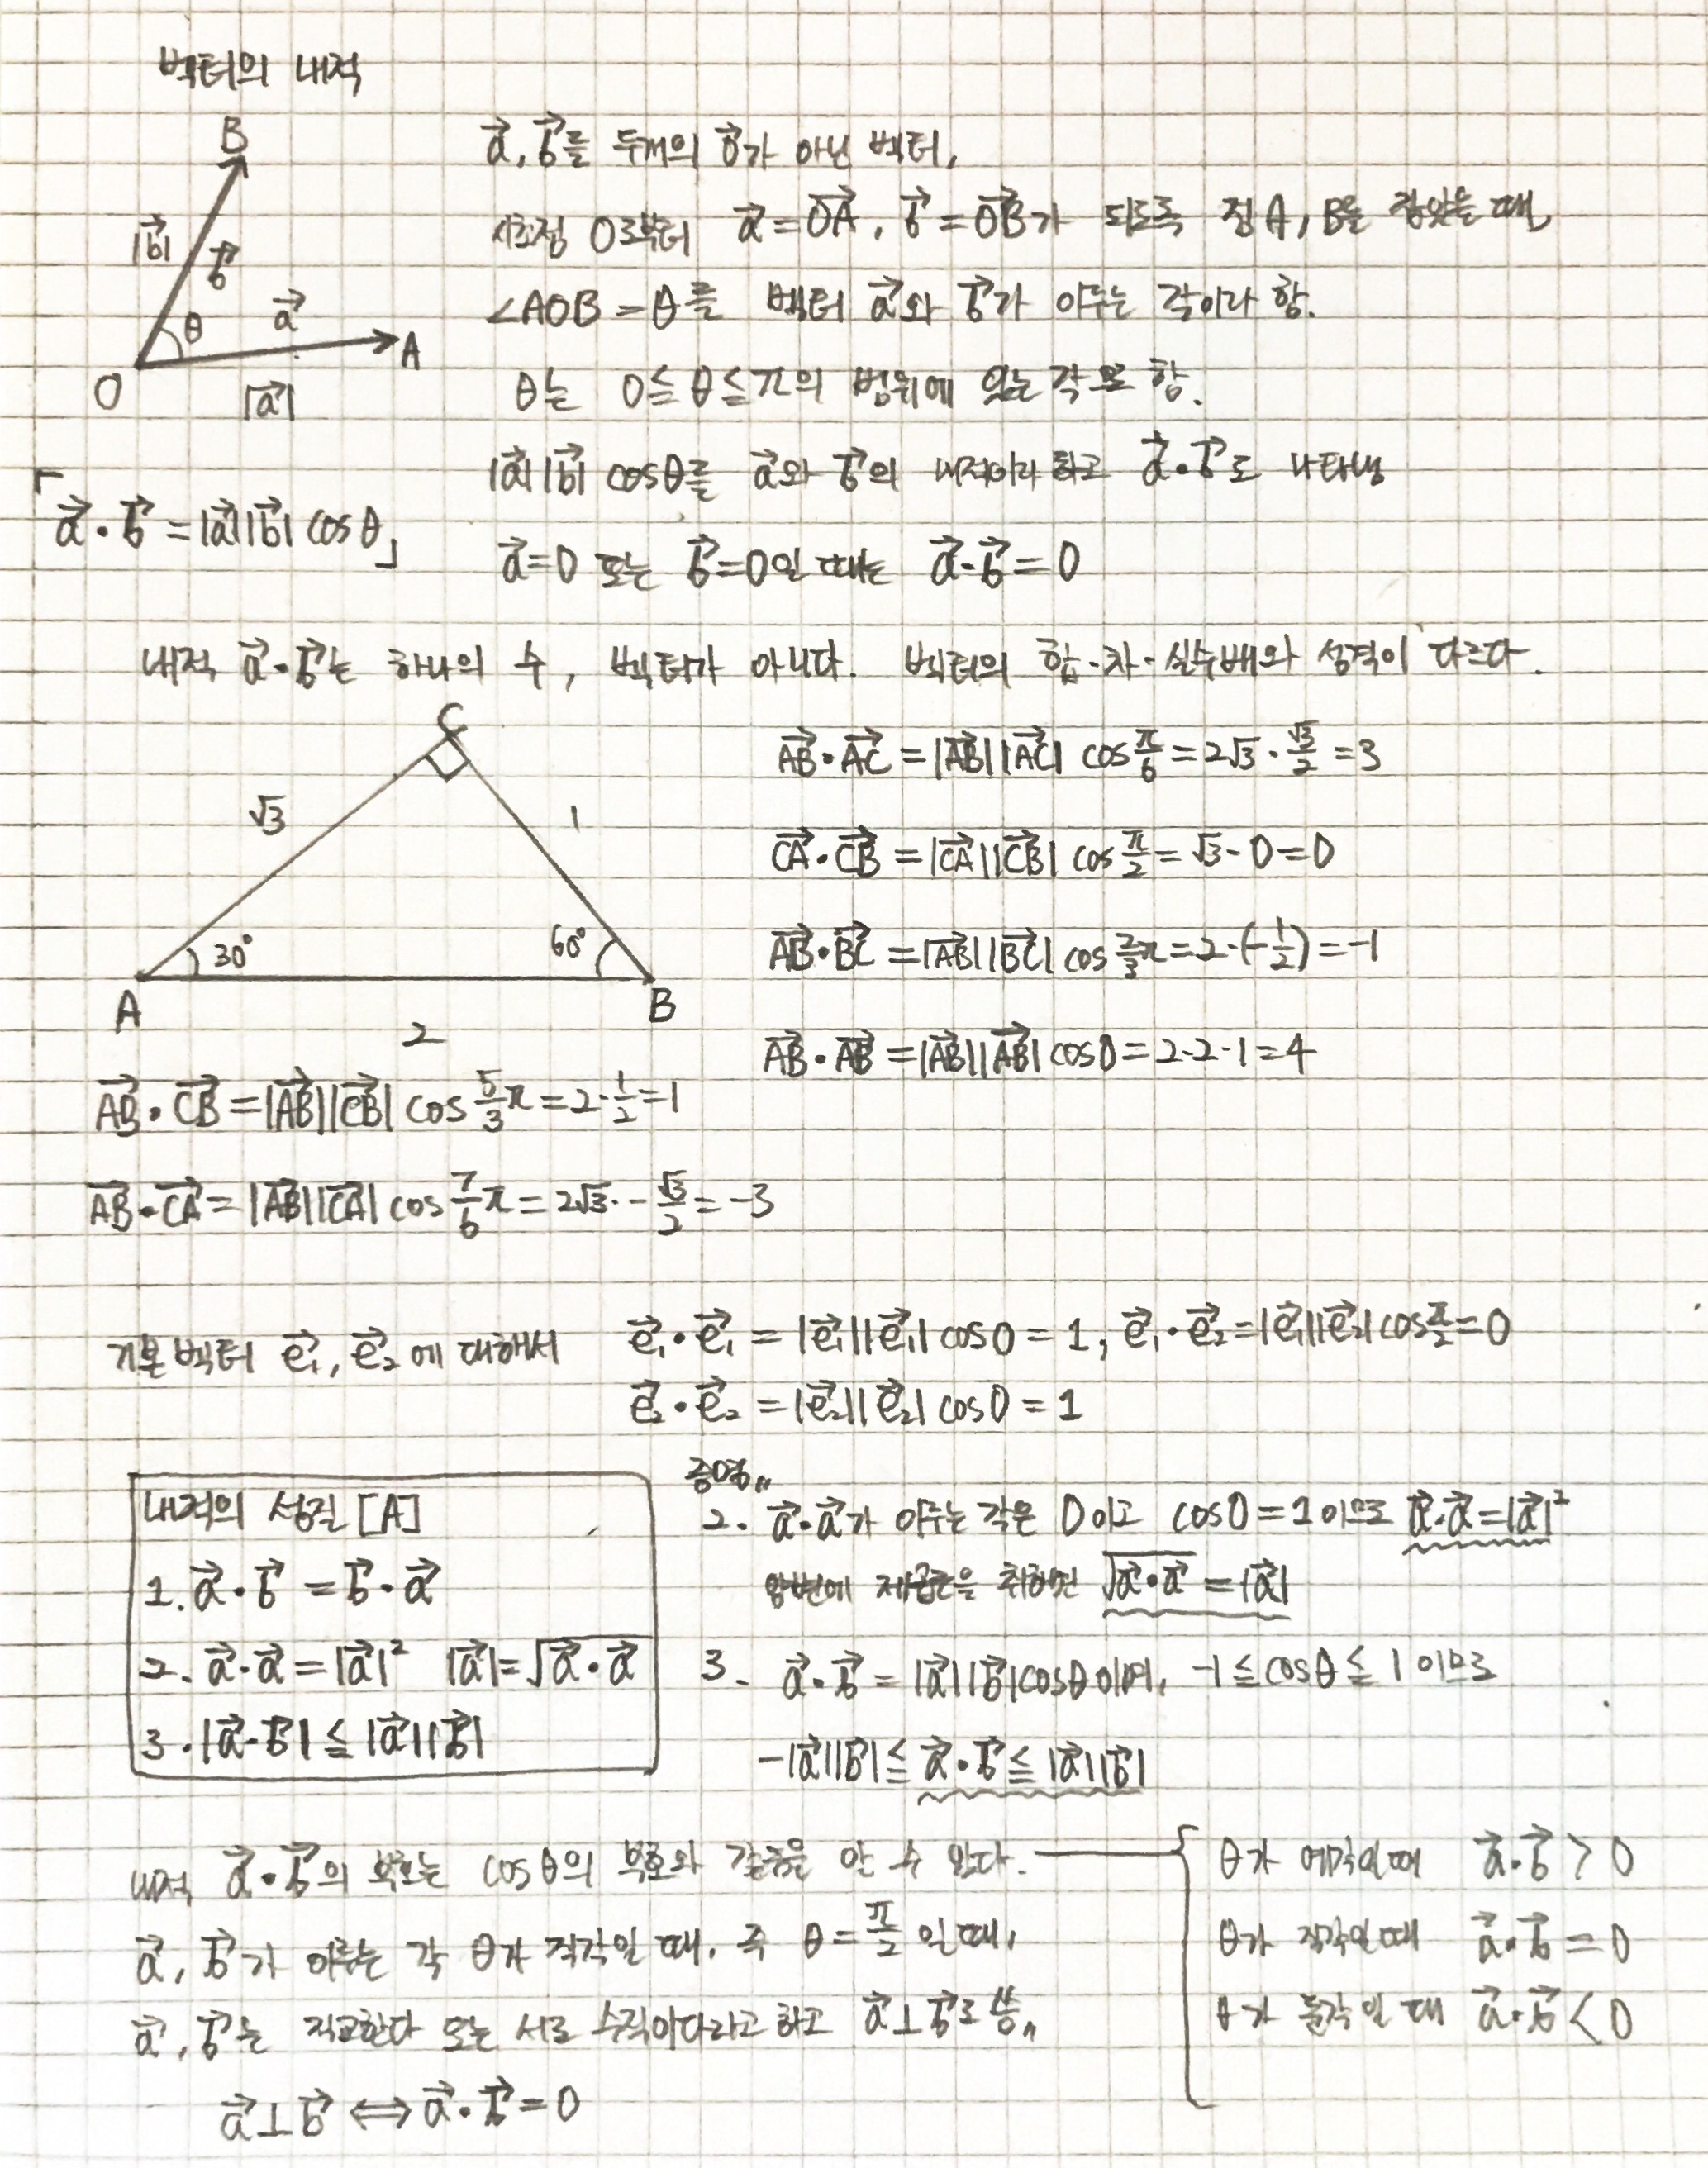 벡터의 내적
B
|b⃗|
b⃗
θ
a⃗
A
O
|a⃗|
a⃗, b⃗를 두개의 0⃗가 아닌 벡터,
시초점 O로부터 a⃗=OA⃗, b⃗=OB⃗가 되도록 점 A, B를 잡았을 때,
∠AOB=θ를 벡터 a⃗와 b⃗가 이루는 각이라 함.
θ는 0≦θ≦π의 범위에 있는 각으로 함.
|a⃗||b⃗| cosθ를 a⃗와 b⃗의 내적이라 하고 a⃗·b⃗로 나타냄
「a⃗·b⃗=|a⃗||b⃗| cosθ」
a⃗=0 또는 b⃗=0일 때는 a⃗·b⃗=0
내적 a⃗·b⃗는 하나의 수, 벡터가 아니다. 벡터의 합·차·실수배와 성격이 다르다.
C
√3
1
30°
60°
A
B
2
AB⃗·AC⃗=|AB⃗||AC⃗| cos π/6=2√3·√3/2=3
CA⃗·CB⃗=|CA⃗||CB⃗| cos π/2=√3·0=0
AB⃗·BC⃗=|AB⃗||BC⃗| cos 2/3π=2·(-1/2)=-1
AB⃗·AB⃗=|AB⃗||AB⃗| cos0=2·2·1=4
AB⃗·CB⃗=|AB⃗||CB⃗| cos 5/3π=2·1/2=1
AB⃗·CA⃗=|AB⃗||CA⃗| cos 7/6π=2√3·-√3/2=-3
기본벡터 e₁⃗, e₂⃗에 대해서 e₁⃗·e₁⃗=|e₁⃗||e₁⃗| cos0=1, e₁⃗·e₂⃗=|e₁⃗||e₂⃗| cos π/2=0
e₂⃗·e₂⃗=|e₂⃗||e₂⃗| cos0=1
내적의 성질 [A]
1. a⃗·b⃗=b⃗·a⃗
2. a⃗·a⃗=|a⃗|² |a⃗|=√a⃗·a⃗
3. |a⃗·b⃗|≦|a⃗||b⃗|
증명〃
2. a⃗·a⃗가 이루는 각은 0이고 cos0=1이므로 a⃗·a⃗=|a⃗|²
양변에 제곱근을 취하면 √a⃗·a⃗=|a⃗|
3. a⃗·b⃗=|a⃗||b⃗|cosθ이며, -1≦cosθ≦1이므로
-|a⃗||b⃗|≦a⃗·b⃗≦|a⃗||b⃗|
내적 a⃗·b⃗의 부호는 cosθ의 부호와 같음을 알 수 있다.
θ가 예각일때 a⃗·b⃗>0
θ가 직각일때 a⃗·b⃗=0
θ가 둔각일 때 a⃗·b⃗<0
a⃗, b⃗가 이루는 각 θ가 직각일 때, 즉 θ=π/2일 때,
a⃗, b⃗는 직교한다 또는 서로 수직이다라고 하고 a⃗⊥b⃗로 씀〃
a⃗⊥b⃗⇔a⃗·b⃗=0